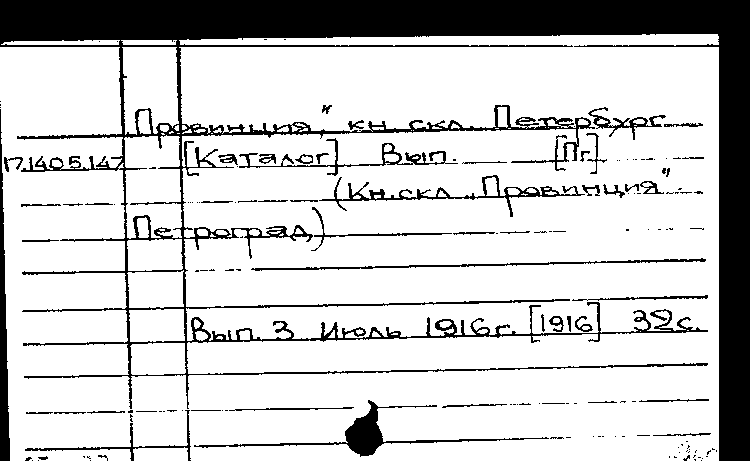 Провинция," кн. скл. Петербург
17.140 5.147 [Каталог] Вып. [Пг.]
(Кн. скл. „Провинция".
Петроград)
Вып. 3 Июль 1916 г. [1916] 32 с.